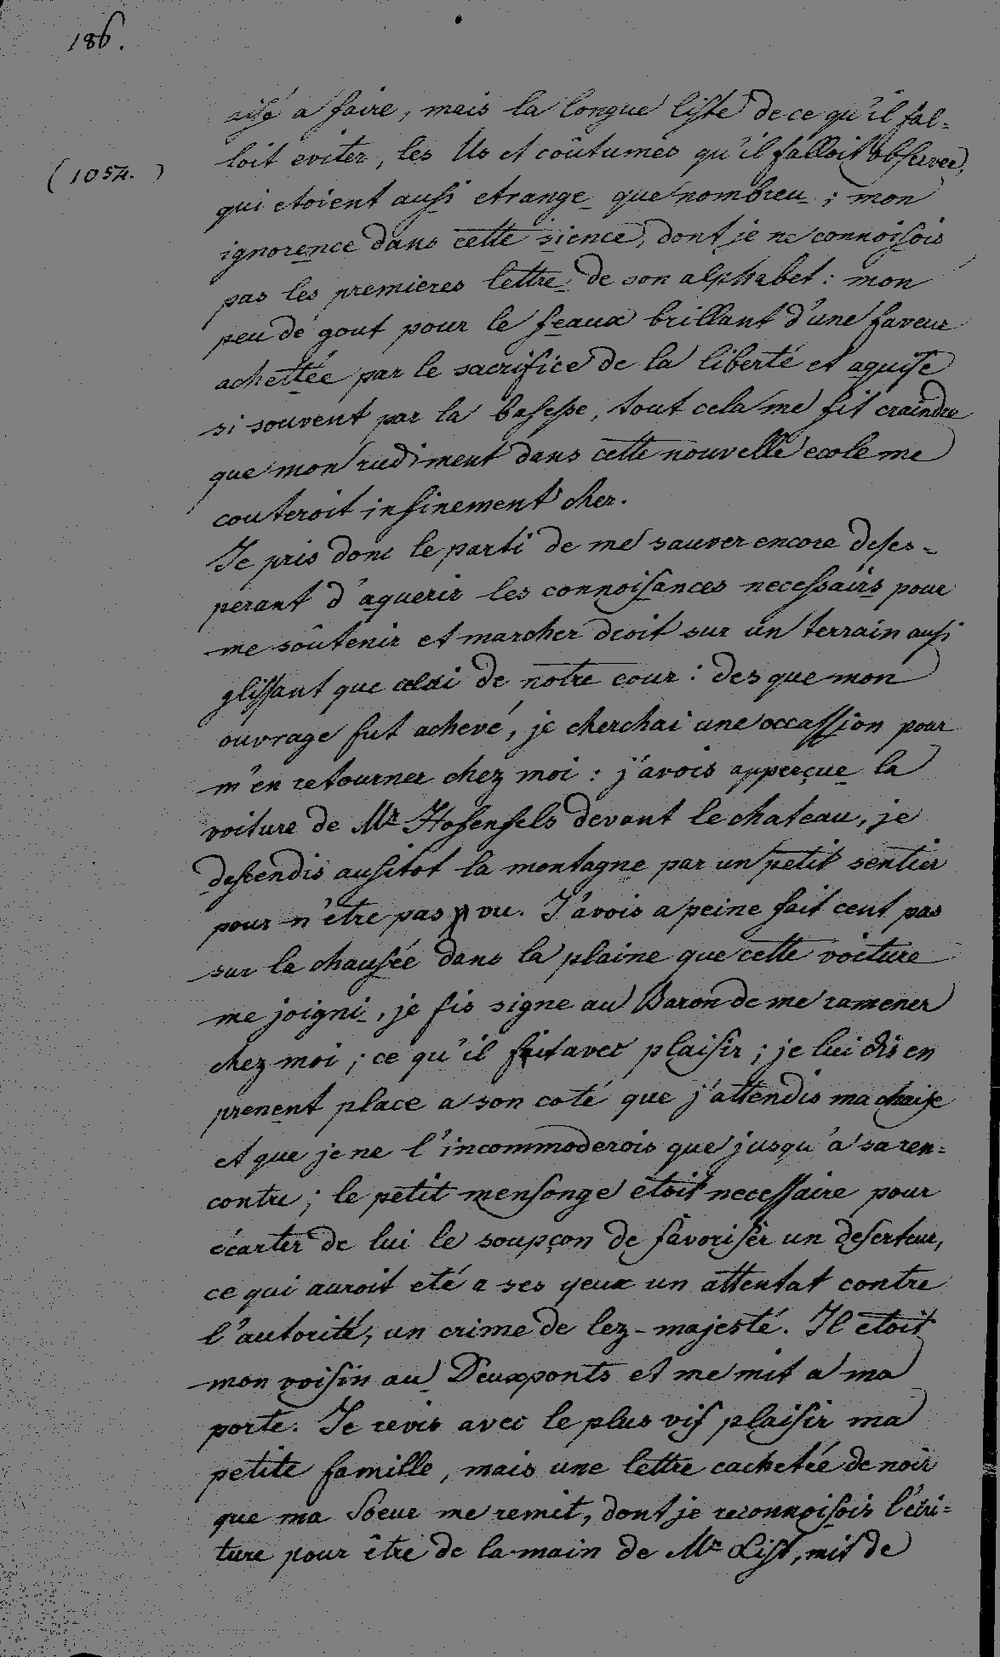 186.
aisé a faire, mais la longue liste de ce qu'il fal=
loit eviter, les Us et coûtumes qu'il falloit observer,
(1054.)
qui etoient aussi etrange que nombreu ; mon
ignorence dans cette sience, dont je ne connoisois
pas les premieres lettre de son alphabet : mon
peu de gout pour le feaux brillant d'une faveur
achettée par le sacrifice de la liberté et aquise
si souvent par la basesse, tout cela me fit craindre
que mon rudiment dans cette nouvelle ecole me
couteroit infinement cher.
Je pris donc le parti de me sauver encore deses=
perant d'aquerir les connoisances necessairs pour
me soûtenir et marcher droit sur un terrain ausi
glissant que celui de notre cour : des que mon
ouvrage fut achevé, je cherchai une occassion pour
m'en retourner chez moi : j'avois apperçue la
voiture de Mr Hofenfels devant le chateau, je
descendis ausitot la montagne par un petit sentier
pour n'etre pas vu. J'avois a peine fait cent pas
sur la chausée dans la plaine que cette voiture
me joigni, je fis signe au Baron de me ramener
chez moi ; ce qu'il fit avec plaisir ; je lui dis en
prenent place a son coté que j'attendis ma chaise
et que je ne l'incommoderois que jusqu'a sa ren=
contre ; le petit mensonge etoit necessaire pour
ecarter de lui le soupçon de favoriser un deserteur,
ce qui auroit eté a ses yeux un attentat contre
l'autorité, un crime de lez-majesté. Il etoit
mon voisin au Deuxponts et me mit a ma
porte. Je revis avec le plus vif plaisir ma
petite famille, mais une lettre cachetée de noir
que ma Soeur me remit, dont je reconnoisois l'ecri=
ture pour être de la main de Mr List, mit de